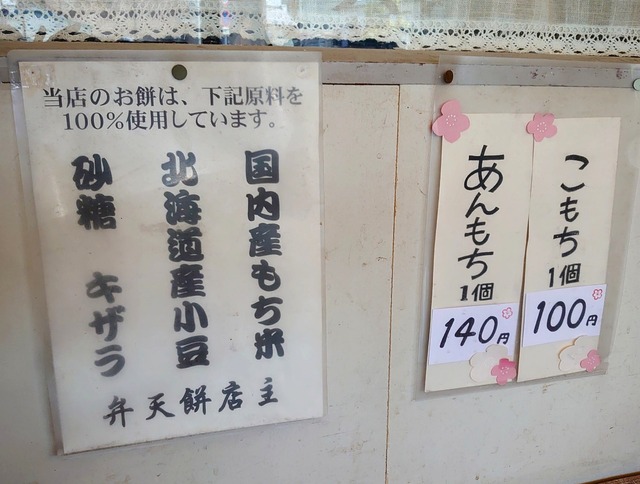 当店のお餅は、下記原料を
100%使用しています。
国内産もち米
北海道産小豆
砂糖 キザラ
弁天餅店主
こもち
1個
100円
あんもち
1個
140円